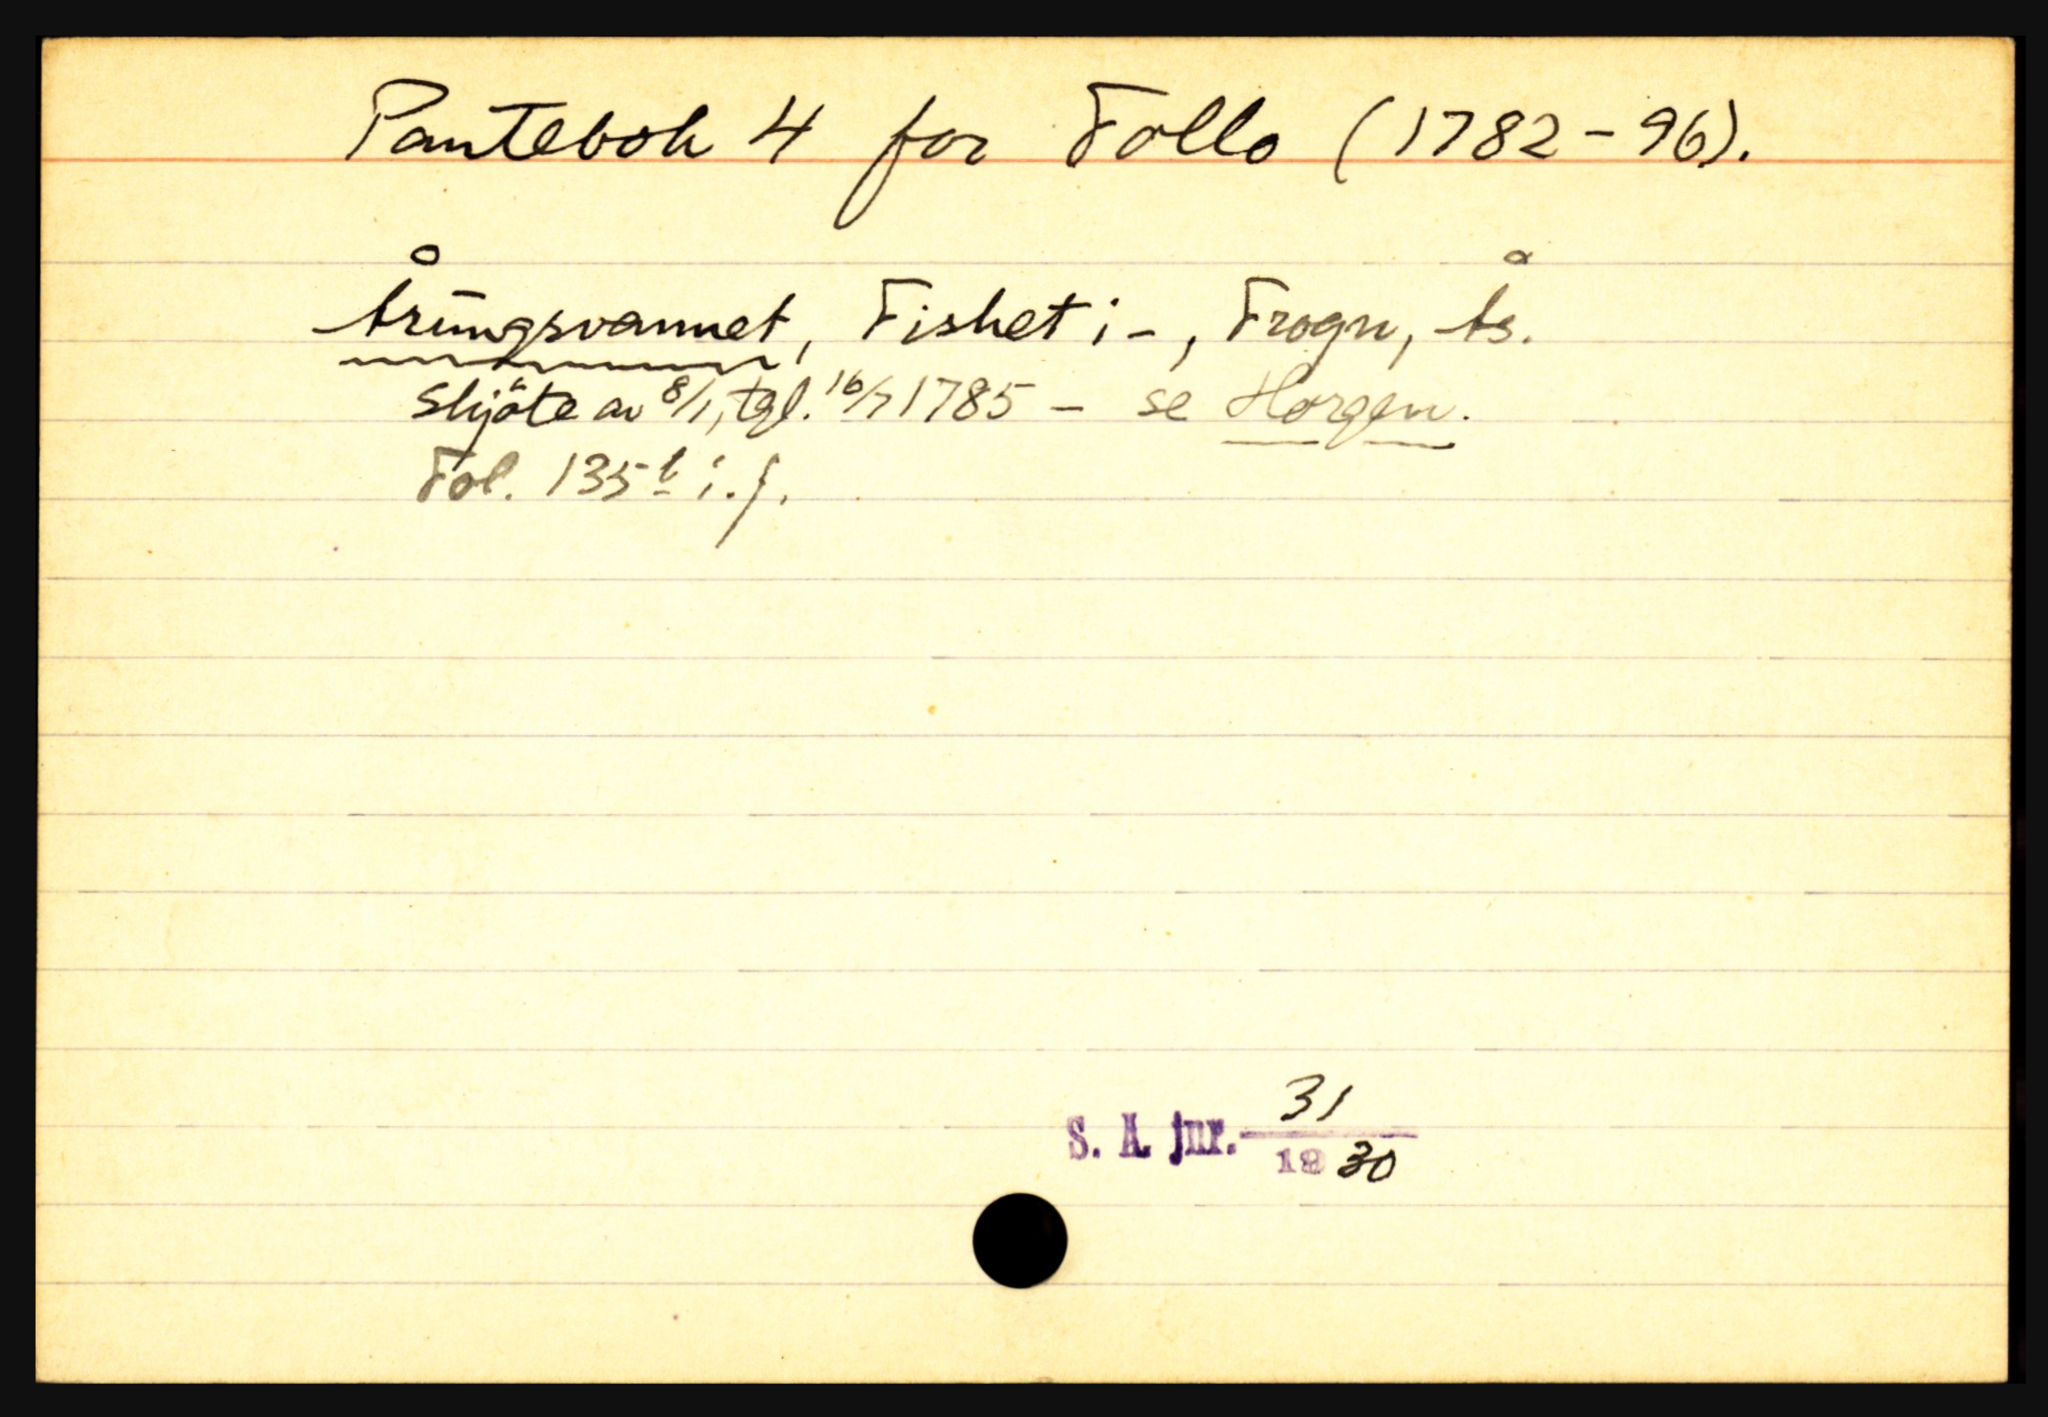 Pantebok 4 for Follo (1782-96).
Årungsvannet, Fisket i -, Frogn, Ås.
Skjöte av 8/1, tgl. 16/7 1785 - se Horgen.
Fol. 135 b i.f.
S. A. jnr. 31
1930